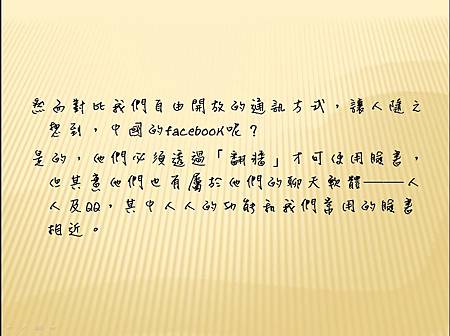 然而對比我們自由開放的通訊方式，讓人隨之
想到，中國的facebook呢？
是的，他們必須透過「翻牆」才可使用臉書，
但其實他們也有屬於他們的聊天軟體——人
人及QQ，其中人人的功能和我們常用的臉書
相近。